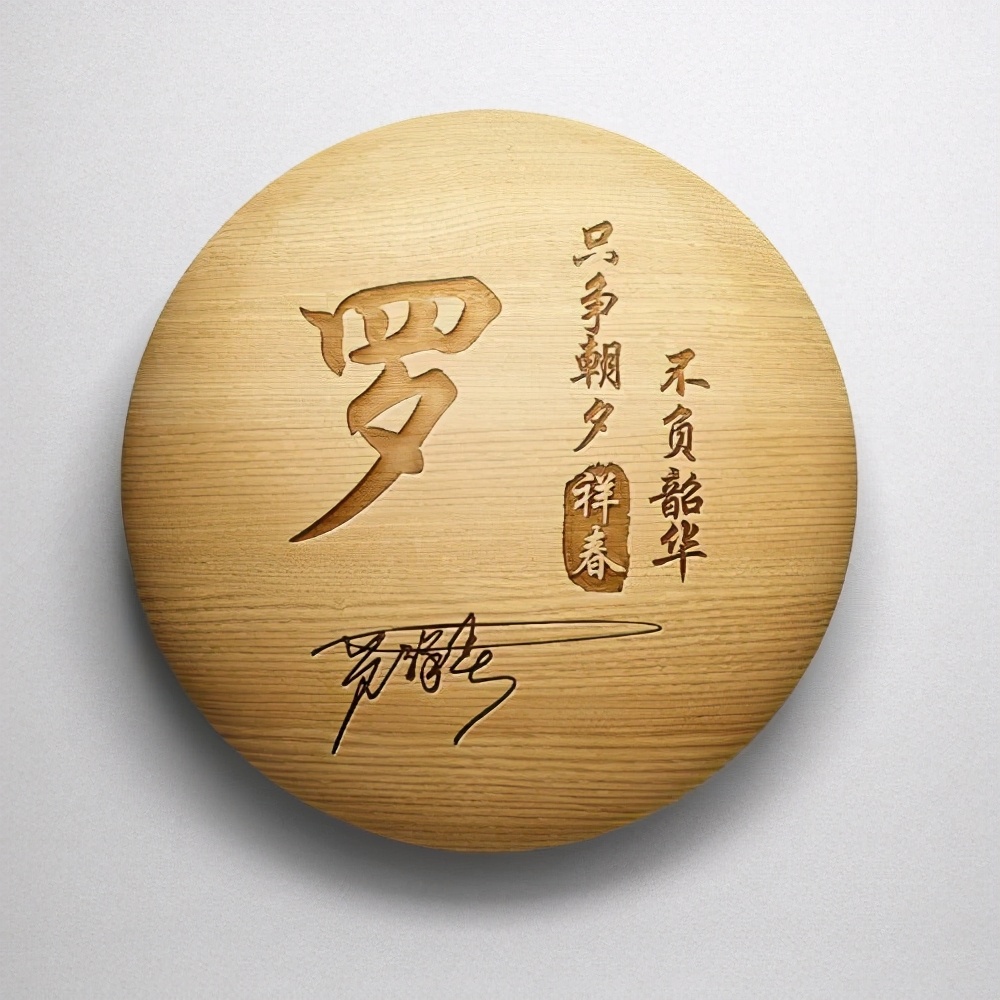 罗
只争朝夕
不负韶华
祥春